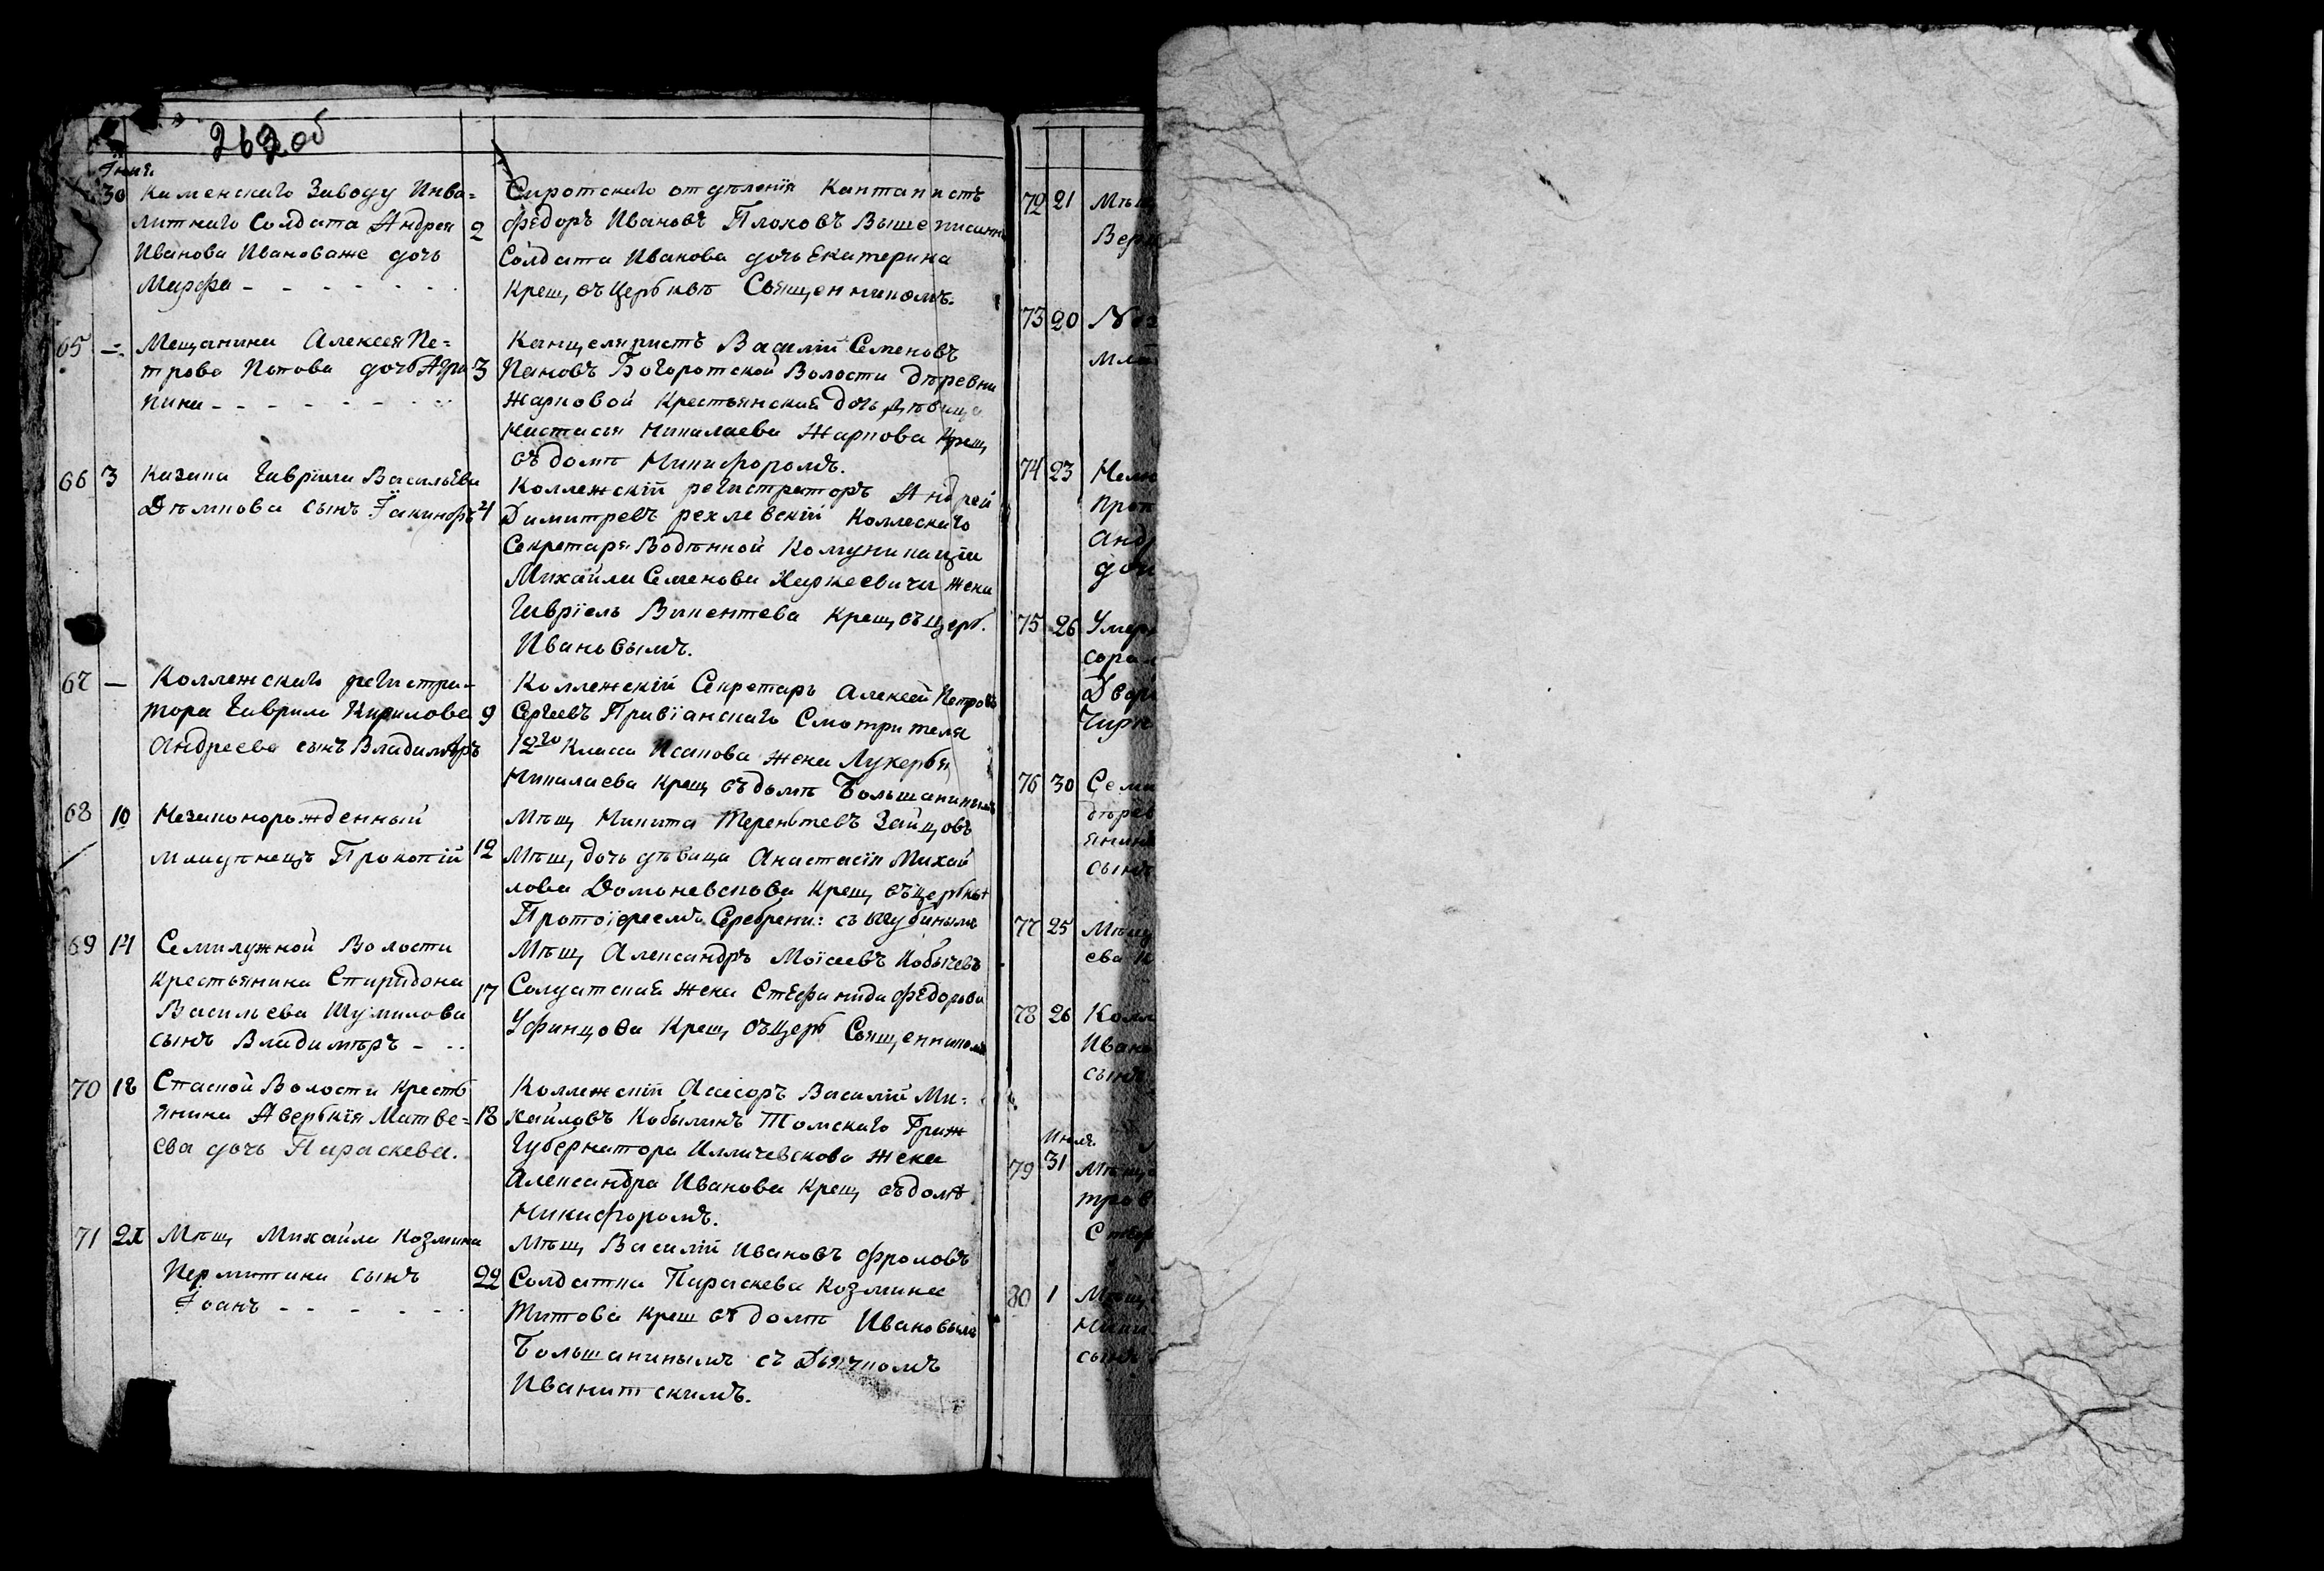 262 об
Іюня
30 Каменскаго Заводу Инва=
литнаго Солдата Андрея
Иванова Ивановаже дочь
Марфа - - - - - -
2
Сиротскаго отдѣленія Кантанистъ
Федоръ Ивановъ Плоховъ Вышеписанн
Солдата Иванова дочь Екатерина
Крещ, въ Церьквѣ Священникомъ.
65 — Мещанина Алексея Пе=
трова Попова дочь Агри
пина - - - - - - -
3
Канцеляристъ Василій Семеновъ
Пановъ Богоротской Волости дѣревни
Жарковой Крестьянская дочь дѣвица
Настасья Николаева Жаркова Крещ,
въ домѣ Никифоромъ.
66 3 Казака Гаврила Васильева
Дѣмкова сынъ Іакинфъ
4
Коллежскій регистраторъ Андрей
Димитревъ рехлевскій Коллескаго
Секретаря Водѣнной Комуникаціи
Михайла Семенова Харкеевича жена
Гавріель Викентева Крещ, въ Церб.
Ивановымъ.
67 — Коллежскаго регистра-
тора Гаврила Кирилова
Андреева сынъ Владимѣръ
9
Коллежскій Секретарь Алексей Петровъ
Сергеевъ Правіанскаго Смотрителя
12го Класса Исакова жена Лукерья
Николаева Крещ, въ домѣ Большанинымъ
68 10 Незаконорожденный
младѣнецъ Прокопій
12
Мѣщ, Никита Терентьевъ Зайцовъ
Мѣщ, дочь дѣвица Анастасія Михай
лова Домоневскова Крещ, въ церквѣ
Протоіереемъ Серебрени: съ Шубинымъ
69 14 Семилужной Волости
Крестьянина Спиридона
Васильева Шумилова
сынъ Владимѣръ - - -
17
Мѣщ, Александръ Моісеевъ Кобычевъ
Солдатская жена Стефанида Федорова
Уфинцова Крещ, въ Церб Священникомъ
70 18 Спаской Волости Кресть
янина Аверкія Матве=
ева дочь Параскева.
18
Коллежскій Асесоръ Василій Ми=
хайловъ Кобылинъ Томскаго Граж
Губернатора Илличевскова жена
Александра Иванова Крещ, въ домѣ
Никифоромъ.
71 21 Мѣщ, Михайла Козмина
Пермитина сынъ
Іоанъ - - - - - -
22
Мѣщ, Василій Ивановъ Фроловъ
Солдатка Параскева Козмина
Титова Крещ въ домѣ Ивановымъ
Большанинымъ съ Дьячкомъ
Иванитскимъ.
72 21
73 20
74 23
75 26
76 30
77 25
78 26
79 31
80 1